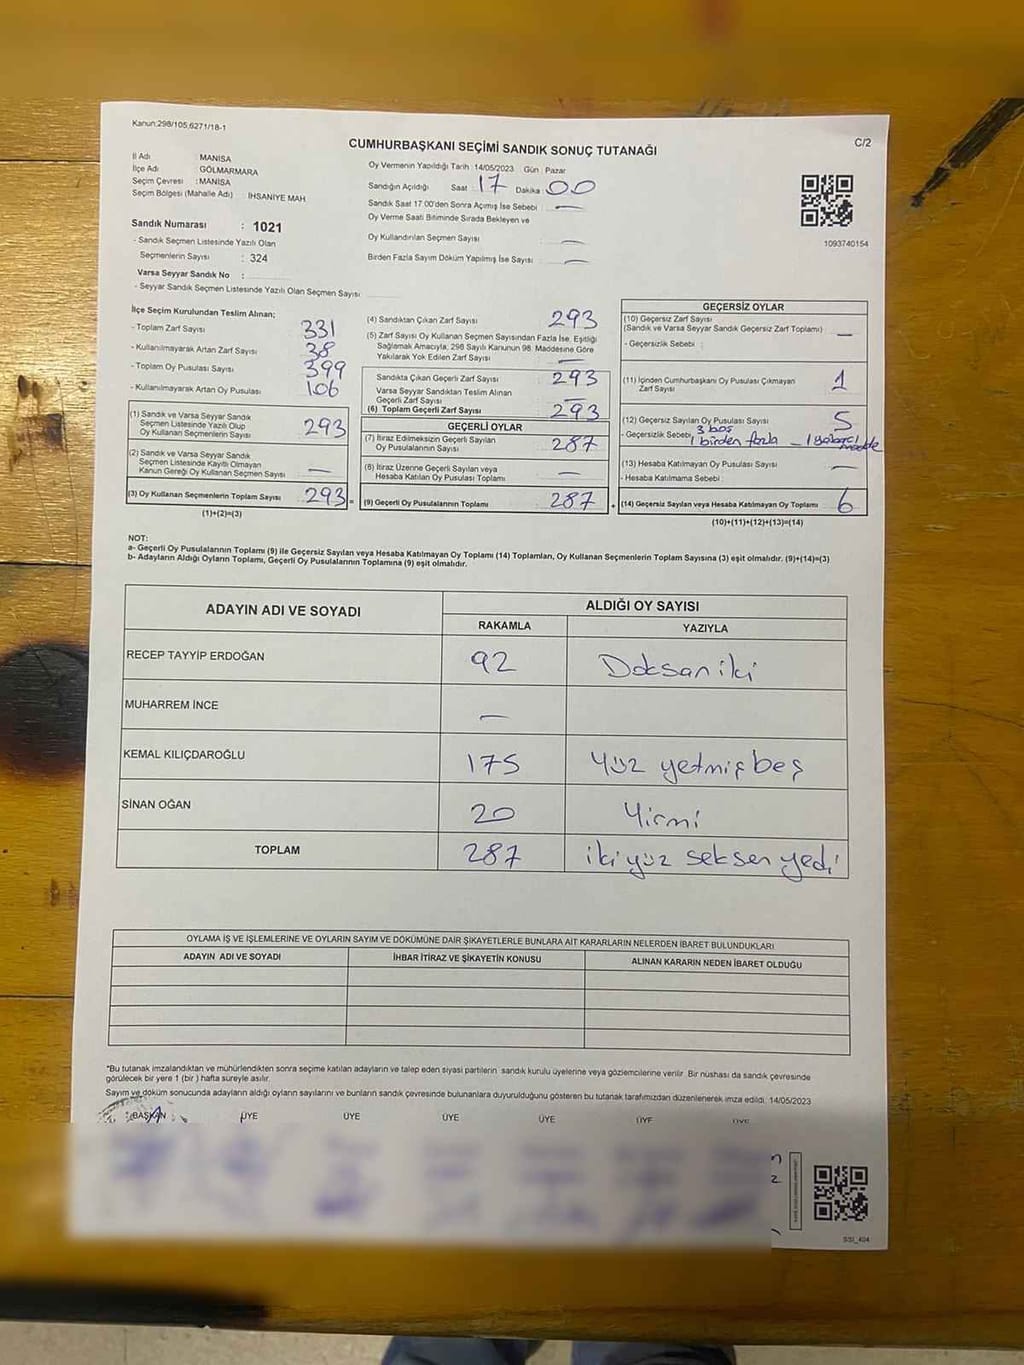 Kanun:298/105,6271/18-1
CUMHURBAŞKANI SEÇİMİ SANDIK SONUÇ TUTANAĞI
C/2
İl Adı MANİSA
İlçe Adı GÖLMARMARA
Seçim Çevresi : MANİSA
Seçim Bölgesi (Mahalle Adı) İHSANİYE MAH
Sandık Numarası : 1021
- Sandık Seçmen Listesinde Yazılı Olan
Seçmenlerin Sayısı : 324
Varsa Seyyar Sandık No :
- Seyyar Sandık Seçmen Listesinde Yazılı Olan Seçmen Sayısı
Oy Vermenin Yapıldığı Tarih : 14/05/2023 Gün : Pazar
Sandığın Açıldığı Saat 17 Dakika : 00
Sandık Saat 17.00'den Sonra Açımış İse Sebebi : —
Oy Verme Saati Bitiminde Sırada Bekleyen ve
Oy Kullandırılan Seçmen Sayısı —
Birden Fazla Sayım Döküm Yapılmış İse Sayısı : —
1093740154
İlçe Seçim Kurulundan Teslim Alınan;
- Toplam Zarf Sayısı 331
- Kullanılmayarak Artan Zarf Sayısı 38
- Toplam Oy Pusulası Sayısı 399
- Kullanılmayarak Artan Oy Pusulası 106
(1) Sandık ve Varsa Seyyar Sandık
Seçmen Listesinde Yazılı Olup
Oy Kullanan Seçmenlerin Sayısı 293
(2) Sandık ve Varsa Seyyar Sandık
Seçmen Listesinde Kayıtlı Olmayan
Kanun Gereği Oy Kullanan Seçmen Sayısı —
(3) Oy Kullanan Seçmenlerin Toplam Sayısı 293 =
(1)+(2)=(3)
(4) Sandıktan Çıkan Zarf Sayısı 293
(5) Zarf Sayısı Oy Kullanan Seçmen Sayısından Fazla İse, Eşitliği
Sağlamak Amacıyla; 298 Sayılı Kanunun 98. Maddesine Göre
Yakılarak Yok Edilen Zarf Sayısı —
Sandıkta Çıkan Geçerli Zarf Sayısı 293
Varsa Seyyar Sandıktan Teslim Alınan
Geçerli Zarf Sayısı —
(6) Toplam Geçerli Zarf Sayısı 293
GEÇERLİ OYLAR
(7) İtiraz Edilmeksizin Geçerli Sayılan
Oy Pusulası Sayısı 287
(8) İtiraz Üzerine Geçerli Sayılan veya
Hesaba Katılan Oy Pusulası Toplamı —
(9) Geçerli Oy Pusulalarının Toplamı 287 +
GEÇERSİZ OYLAR
(10) Geçersiz Zarf Sayısı
(Sandık ve Varsa Seyyar Sandık Geçersiz Zarf Toplamı) —
- Geçersizlik Sebebi :
(11) İçinden Cumhurbaşkanı Oy Pusulası Çıkmayan
Zarf Sayısı 1
(12) Geçersiz Sayılan Oy Pusulası Sayısı 5
3 boş
- Geçersizlik Sebebi 1 birden fazla — 1
(13) Hesaba Katılmayan Oy Pusulası Sayısı —
- Hesaba Katılmama Sebebi :
(14) Geçersiz Sayılan veya Hesaba Katılmayan Oy Toplamı 6
(10)+(11)+(12)+(13)=(14)
NOT:
a- Geçerli Oy Pusulalarının Toplamı (9) ile Geçersiz Sayılan veya Hesaba Katılmayan Oy Toplamı (14) Toplamları, Oy Kullanan Seçmenlerin Toplam Sayısına (3) eşit olmalıdır. (9)+(14)=(3)
b- Adayların Aldığı Oyların Toplamı, Geçerli Oy Pusulalarının Toplamına (9) eşit olmalıdır.
ADAYIN ADI VE SOYADI ALDIĞI OY SAYISI
RAKAMLA YAZIYLA
RECEP TAYYİP ERDOĞAN 92 Doksan iki
MUHARREM İNCE —
KEMAL KILIÇDAROĞLU 175 Yüz yetmiş beş
SİNAN OĞAN 20 Yirmi
TOPLAM 287 iki yüz seksen yedi
OYLAMA İŞ VE İŞLEMLERİNE VE OYLARIN SAYIM VE DÖKÜMÜNE DAİR ŞİKAYETLERLE BUNLARA AİT KARARLARIN NELERDEN İBARET BULUNDUKLARI
ADAYIN ADI VE SOYADI İHBAR İTİRAZ VE ŞİKAYETİN KONUSU ALINAN KARARIN NEDEN İBARET OLDUĞU
"Bu tutanak imzalandıktan ve mühürlendikten sonra seçime katılan adayların ve talep eden siyasi partilerin sandık kurulu üyelerine veya gözlemcilerine verilir. Bir nüshası da sandık çevresinde
görülecek bir yere 1 (bir) hafta süreyle asılır.
Sayım ve döküm sonucunda adayların aldığı oyların sayılarını ve bunların sandık çevresinde bulunanlara duyurulduğunu gösteren bu tutanak tarafımızdan düzenlenerek imza edildi. 14/05/2023
BAŞKAN ÜYE ÜYE ÜYE ÜYE ÜYE ÜYE